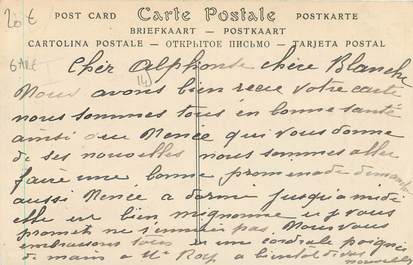 20€
POST CARD Carte Postale POSTKARTE
BRIEFKAART — POSTKAART
CARTOLINA POSTALE — ОТКРЫТОЕ ПИСЬМО — TARJETA POSTAL
Cher Alphonse chère Blanche
(14)
Nous avons bien recu votre carte
nous sommes tous en bonne santé
ainsi que Renée qui vous donne
de ses nouvelles nous sommes aller
faire une bonne promenade dimanche
aussi Renée a dormi jusqu'a midi
elle est bien mignonne je vous
promet ne s'ennuie pas. Nous vous
embrassons tous et une cordiale poignée
de main a Mr Roy a bientôt de vos
nouvelles